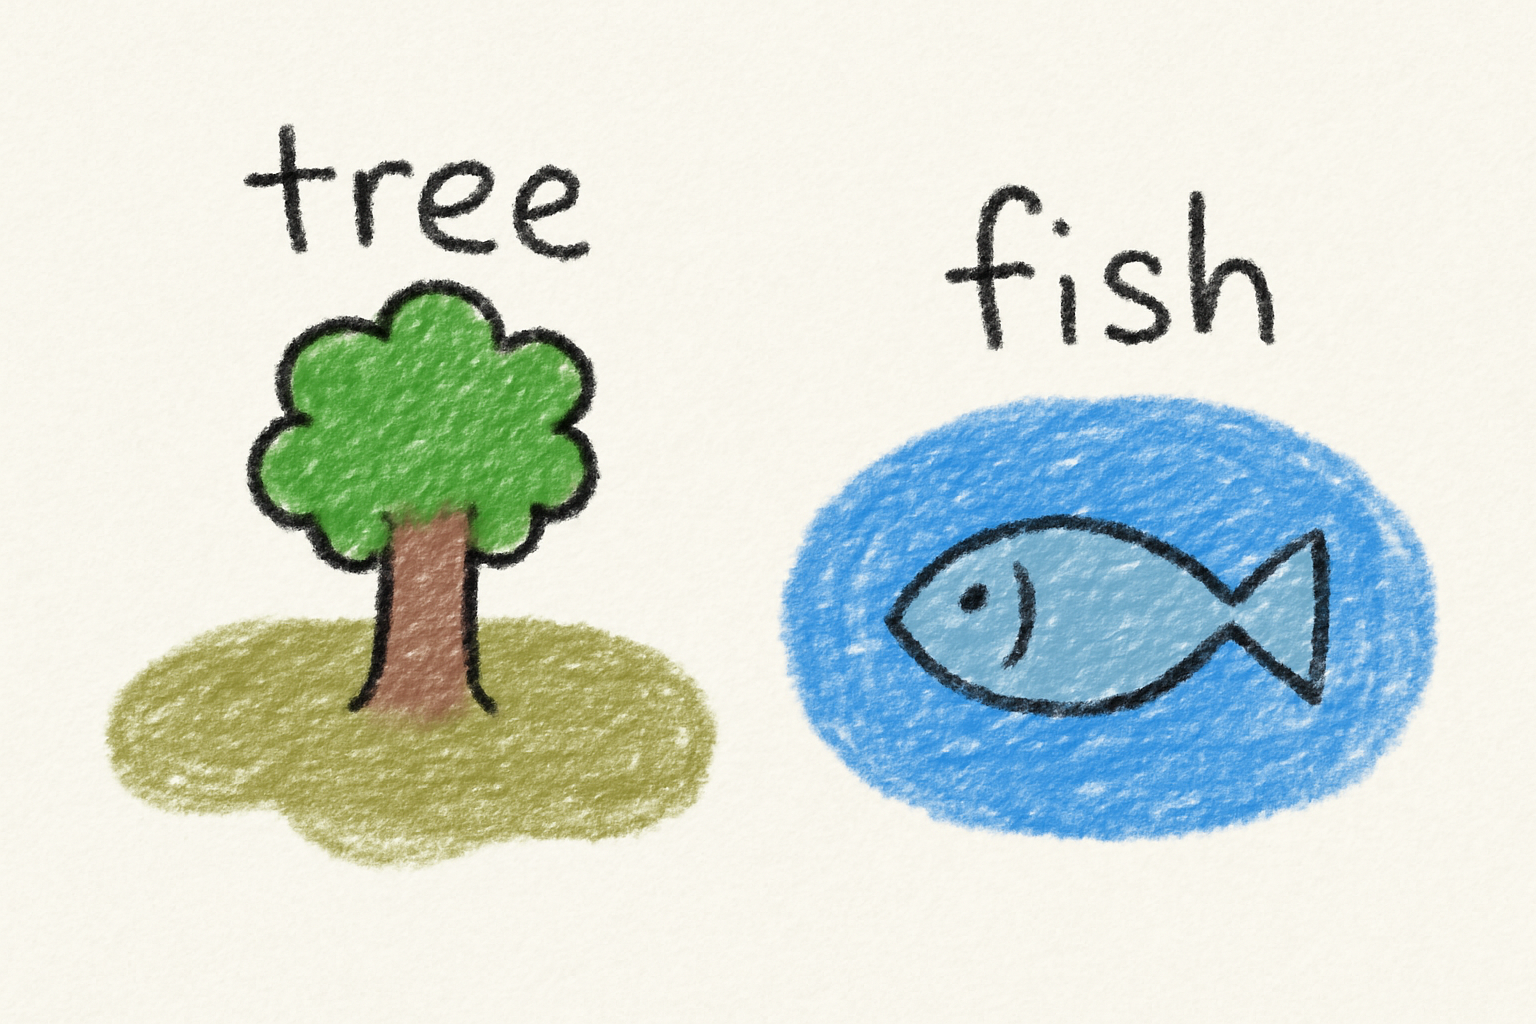 tree
fish